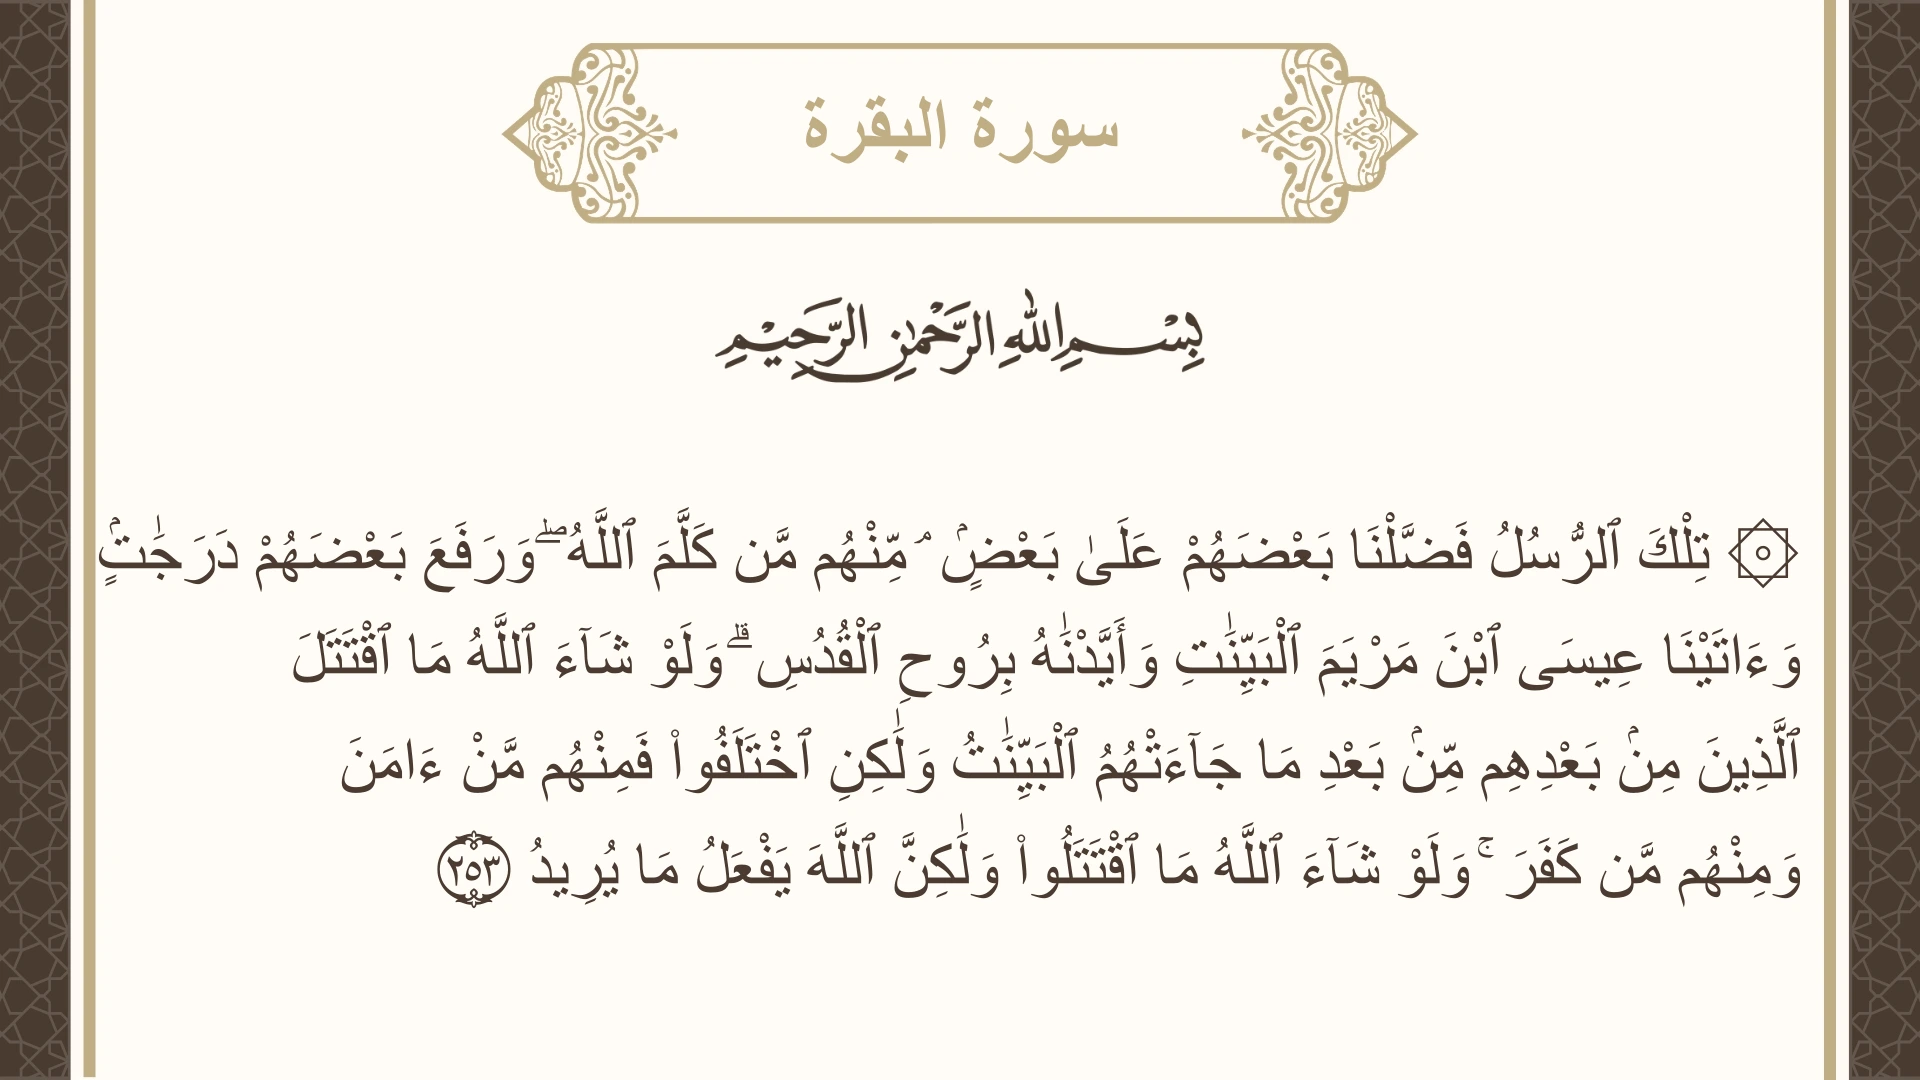 سورة البقرة
بِسْمِ اللهِ الرَّحْمٰنِ الرَّحِيْمِ
۞ تِلْكَ ٱلرُّسُلُ فَضَّلْنَا بَعْضَهُمْ عَلَىٰ بَعْضٍۢ ۘ مِّنْهُم مَّن كَلَّمَ ٱللَّهُ ۖ وَرَفَعَ بَعْضَهُمْ دَرَجَـٰتٍۢ
وَءَاتَيْنَا عِيسَى ٱبْنَ مَرْيَمَ ٱلْبَيِّنَـٰتِ وَأَيَّدْنَـٰهُ بِرُوحِ ٱلْقُدُسِ ۗ وَلَوْ شَآءَ ٱللَّهُ مَا ٱقْتَتَلَ
ٱلَّذِينَ مِنۢ بَعْدِهِم مِّنۢ بَعْدِ مَا جَآءَتْهُمُ ٱلْبَيِّنَـٰتُ وَلَـٰكِنِ ٱخْتَلَفُوا۟ فَمِنْهُم مَّنْ ءَامَنَ
وَمِنْهُم مَّن كَفَرَ ۚ وَلَوْ شَآءَ ٱللَّهُ مَا ٱقْتَتَلُوا۟ وَلَـٰكِنَّ ٱللَّهَ يَفْعَلُ مَا يُرِيدُ ٢٥٣